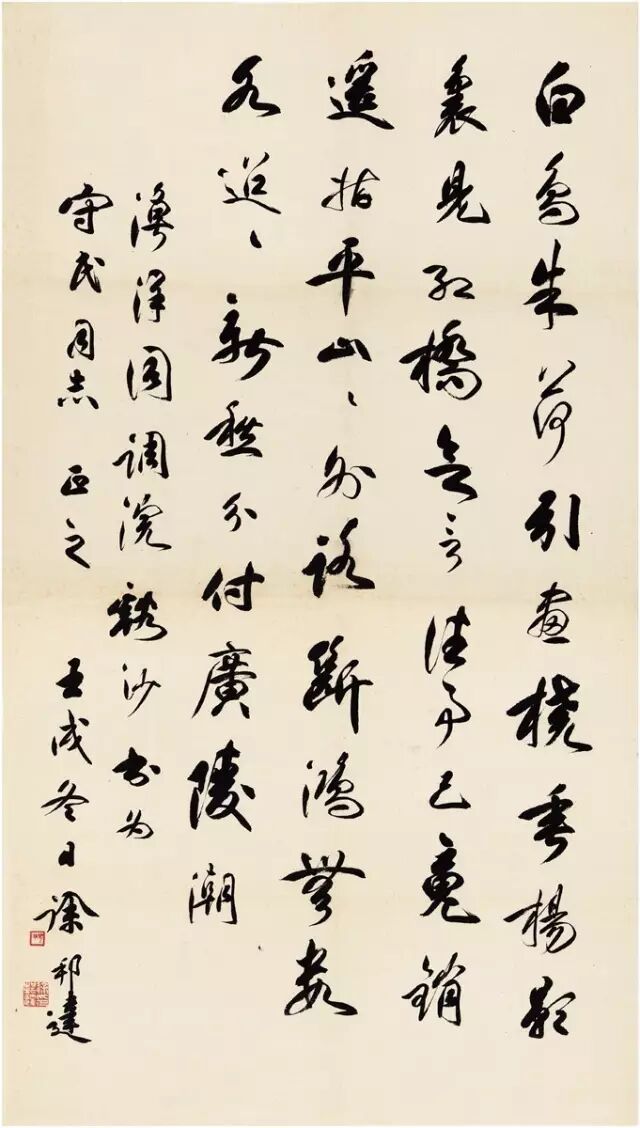 白鳥朱荷引畫橈垂楊影
裏見紅橋欲尋往事已魂銷
遙指平山〻外路斷鴻無數
水迢〻新愁分付廣陵潮
漁洋調浣谿沙書為
守民同志 正之 壬戌冬日徐邦達